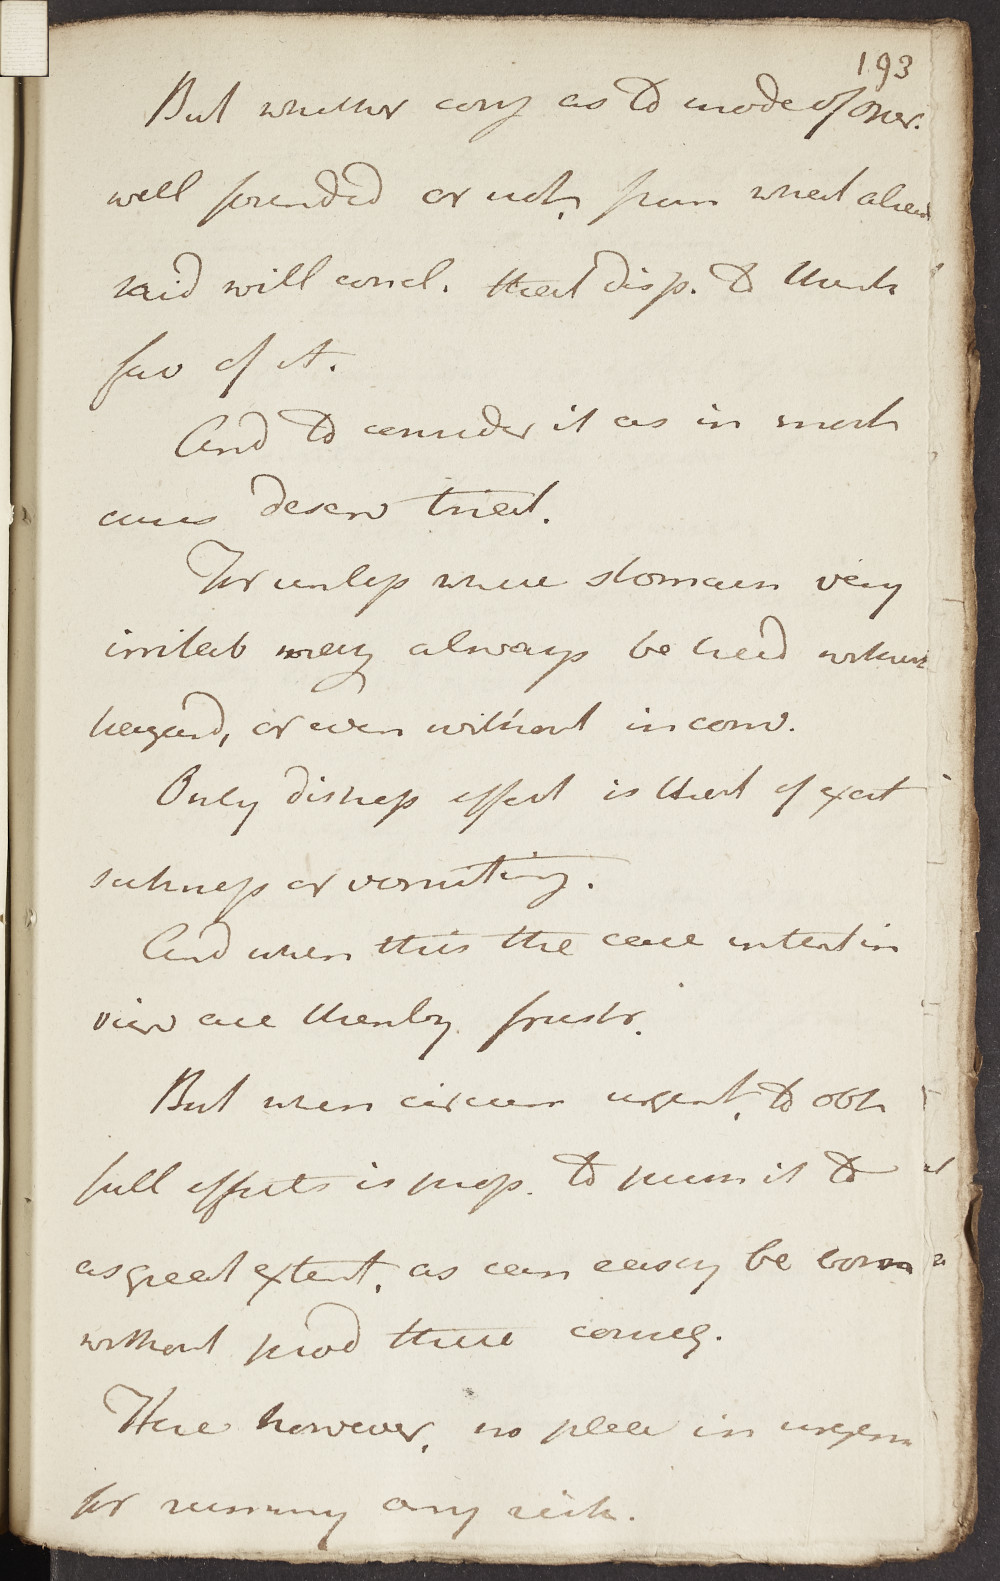 193
But whether conj as to mode of oper.
well founded or not, from what alread
said will concl. that disp. to think
fav of it.
And to consider it as in most
cases deserv trial.
For unless where stomach very
irritab may always be used without
hazard, or even without inconv.
Only distress effect is that of excit
sickness or vomiting.
And when this the case intent in
view are thereby frustr.
But when circum urgent, to obt
full effects is prop. to push it to
as great extent, as can easily be born
without prod these conseq.
Here however, no plea in urgen
for running any risk.